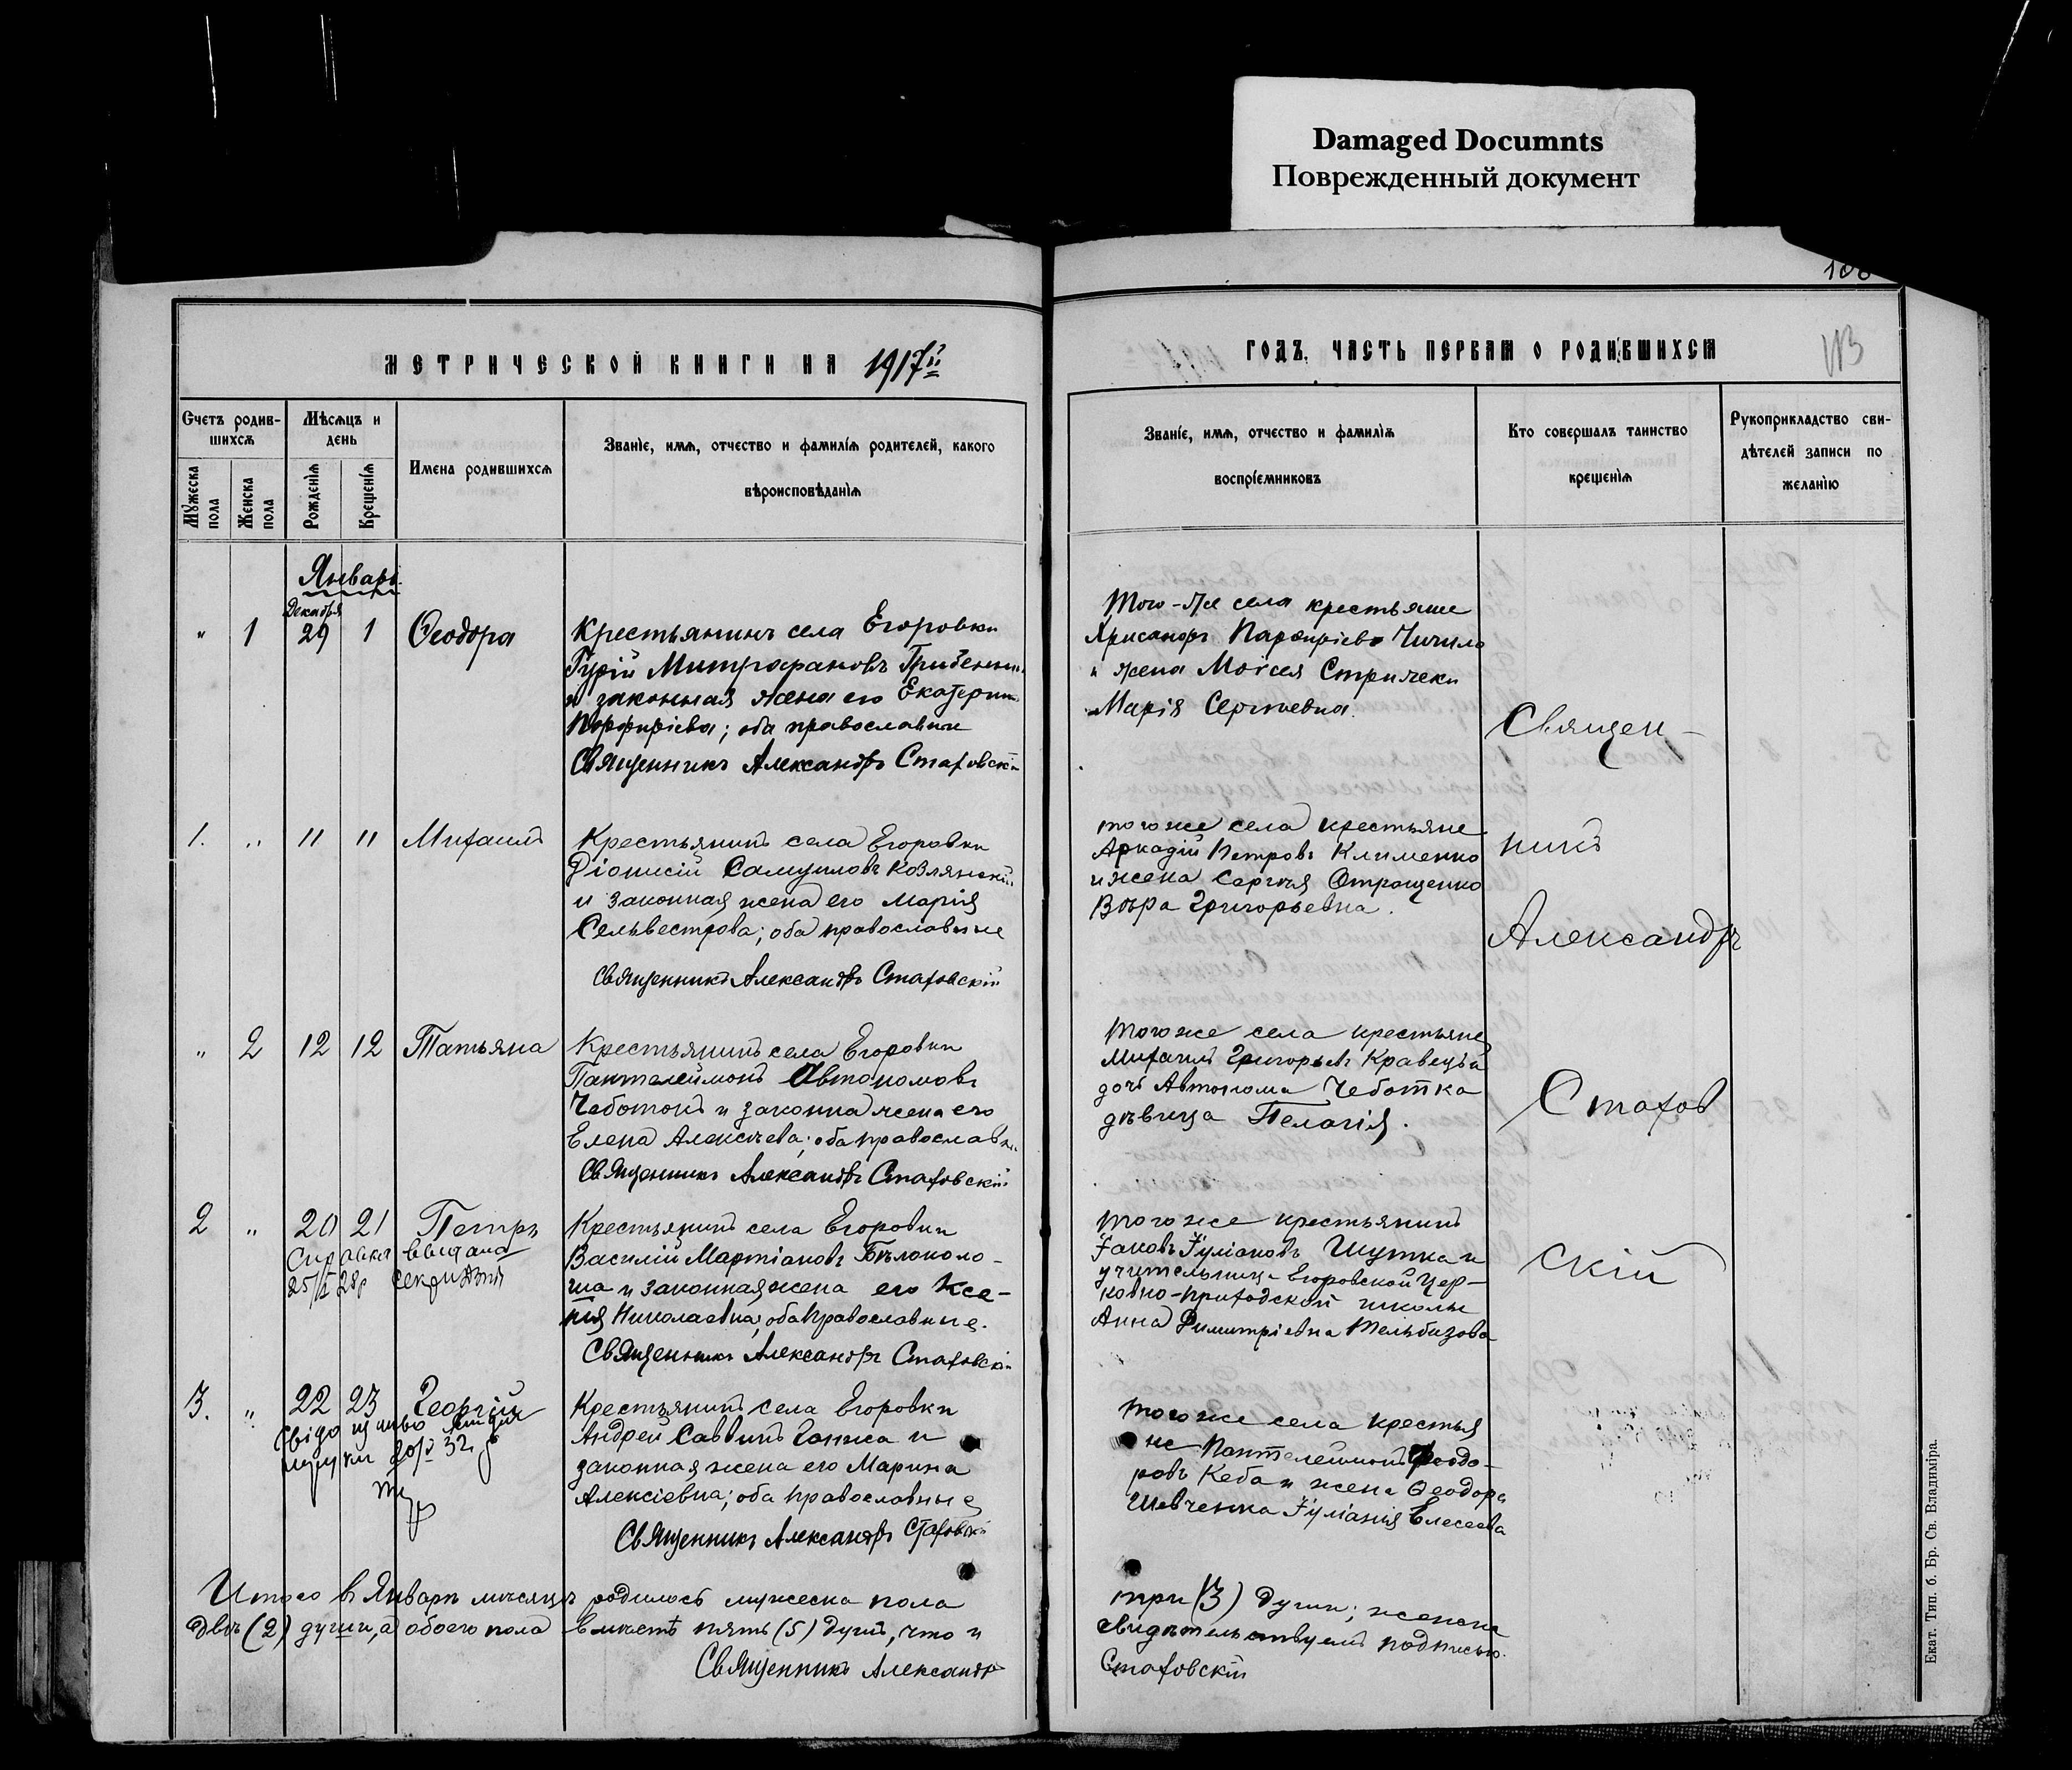 Damaged Documnts
Поврежденный документ
МЕТРИЧЕСКОЙ КНИГИ НА 1917й
Счетъ родив-
шихся
Мѣсяцъ и
день
Имена родившихся
Званіе, имя, отчество и фамилія родителей, какого
вѣроисповѣданія
Мужеска
пола
Женска
пола
Рожденія
Крещенія
Январь
Декабря
" 1 29 1 Ѳеодора
Крестьянинъ села Егоровки
Гурій Митрофановъ
и законная жена его
Порфиріева; оба православные
Священникъ Александръ Стаховскій
1. " 11 11 Михаилъ
Крестьянинъ села Егоровки
Діонисій Самуиловъ Козлянскій
и законная жена его Марія
Сельвестрова; оба православные
Священникъ Александръ Стаховскій
" 2 12 12 Татьяна
Крестьянинъ села Егоровки
Пантелеймонъ Автономовъ
Чеботокъ и законна жена его
Елена Алексѣева; оба православн
Священникъ Александръ Стаховскій
2 " 20 21 Петръ
Справка выдана
25/ 28р
Крестьянинъ села Егоровки
Василій Мартіановъ Бѣлоколо-
ша и законная жена его Ксе-
нія Николаевна; оба православные.
Священникъ Александръ Стаховскій
3. " 22 23 Георгій
Крестьянинъ села Егоровки
Андрей Саввинъ и
законная жена его Марина
Алексіевна; оба православные
Священникъ Александръ Стаховскій
Итого въ Январѣ мѣсяцѣ родилось мужеска пола
двѣ (2) души, а обоего пола вмѣстѣ пять (5) душъ, что и
Священникъ Александръ
108
ГОДЪ. ЧАСТЬ ПЕРВАЯ О РОДИВШИХСЯ
113
Званіе, имя, отчество и фамилія
воспріемниковъ
Кто совершалъ таинство
крещенія
Рукоприкладство сви-
дѣтелей записи по
желанію
Того-же села крестьяне
Хрисанфъ Парфиріевъ Чичило
и жена Моѵсея Стрижеки
Марія Сергѣевна.
того же села крестьяне
Аркадій Петровъ Клименко
и жена Сергѣя Отрощенко
Вѣра Григорьевна.
Того же села крестьяне
Михаилъ Григорьевъ Кравецъ и
дочь Автонома Чеботка
дѣвица Пелагія.
Того же крестьянинъ
Іаковъ Іуліановъ Шутка и
учительница Егоровской Цер-
ковно-приходской школы
Анна Димитріевна Тельбизова
Того же села крестья
не Пантелеймонъ Ѳеодо-
ровъ Кеба и жена Ѳеодора
Шевченка Іуліанія Елесеева
Священ-
никъ
Александръ
Стахов
скій
три (3) души; женска
свидѣтельствуемъ подписью.
Стаховскій
Екат. Тип. б. Бр. Св. Владиміра.